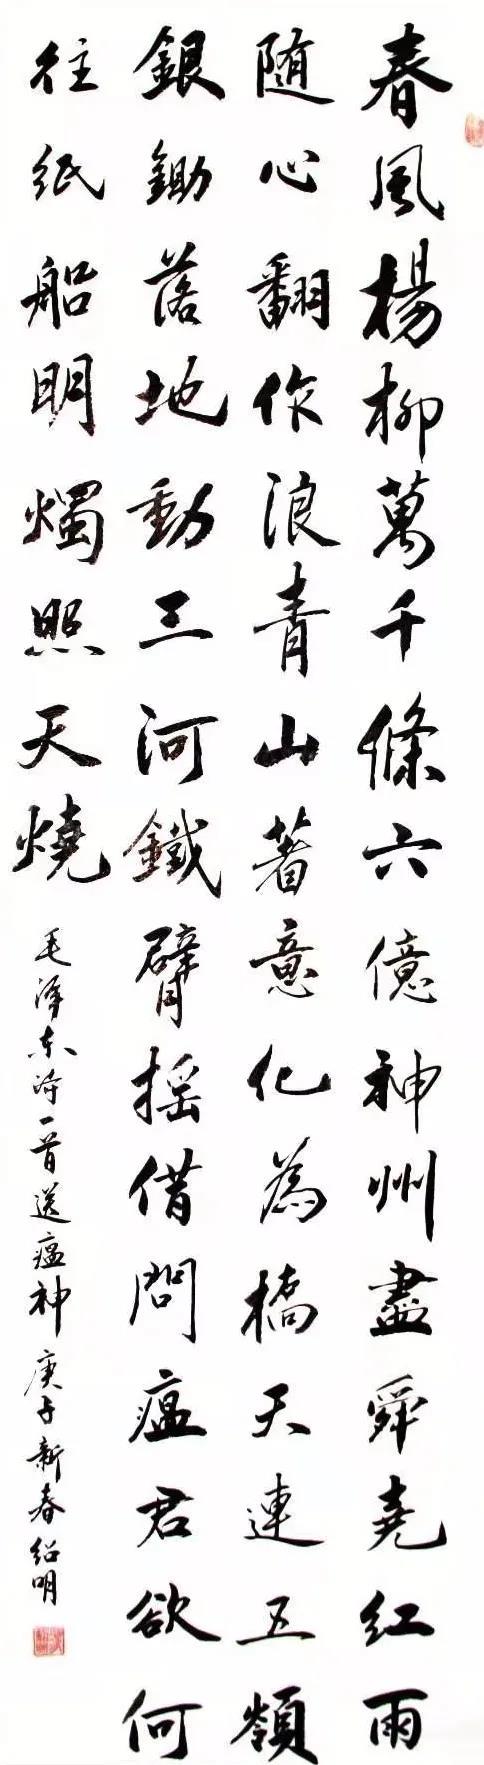 春風楊柳萬千條六億神州盡舜堯紅雨
隨心翻作浪青山著意化為橋天連五嶺
銀鋤落地動三河鐵臂搖借問瘟君欲何
往紙船明燭照天燒
毛泽东诗一首送瘟神庚子新春绍明